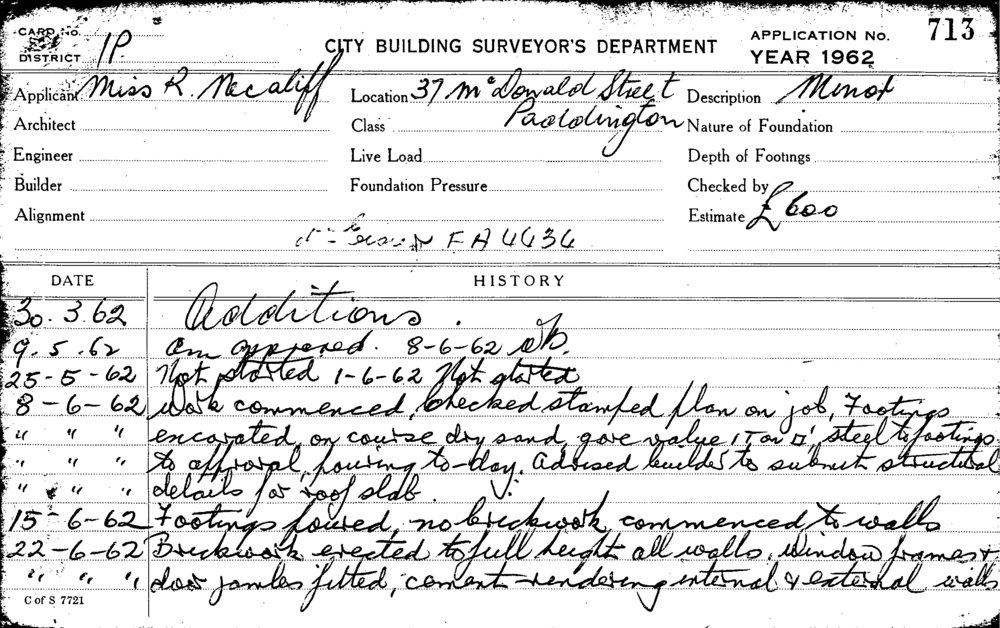 CARD No.
DISTRICT 1P.
CITY BUILDING SURVEYOR'S DEPARTMENT
APPLICATION No. 713
YEAR 1962
Applicant Miss R. Mecaliff
Location 37 Mc Donald Street
Paddington
Description Minor
Architect
Class
Nature of Foundation
Engineer
Live Load
Depth of Footings
Builder
Foundation Pressure
Checked by
Alignment
Estimate £600
FA4434
DATE HISTORY
30.3.62 Additions.
9.5.62 approved. 8-6-62
25-5-62 Not started 1-6-62 Not started
8-6-62 work commenced, checked stamped plan on job, Footings
" " " encavated, on course dry sand, gave value 1T on □', steel to footings
" " " to approval, pouring to-day. Advised builder to submit structural
" " " details for roof slab.
15-6-62 Footings poured, no brickwork commenced to walls
22-6-62 Brickwork erected to full height all walls, window frames +
" " " door jambs fitted, cement-rendering internal & external walls
C of S 7721